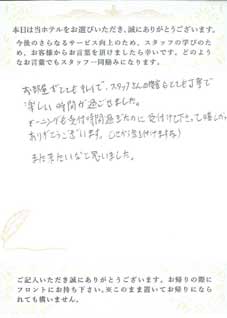 本日は当ホテルをお選びいただき、誠にありがとうございます。
今後のさらなるサービス向上のため、スタッフの学びのた
め、お客様からお言葉を頂けましたら幸いです。どのよう
なお言葉でもスタッフ一同励みになります。
お部屋がとてもキレイで、スタッフさんの接客もとても丁寧で
楽しい時間が過ごせました。
モーニングも受付時間過ぎたのに受付けて下さって嬉しかった
ありがとうございます。
また来たいなと思いました。
ご記入いただき誠にありがとうございます。お帰りの際に
フロントにお持ち下さい。※このまま置いてお帰りになられ
ても構いません。